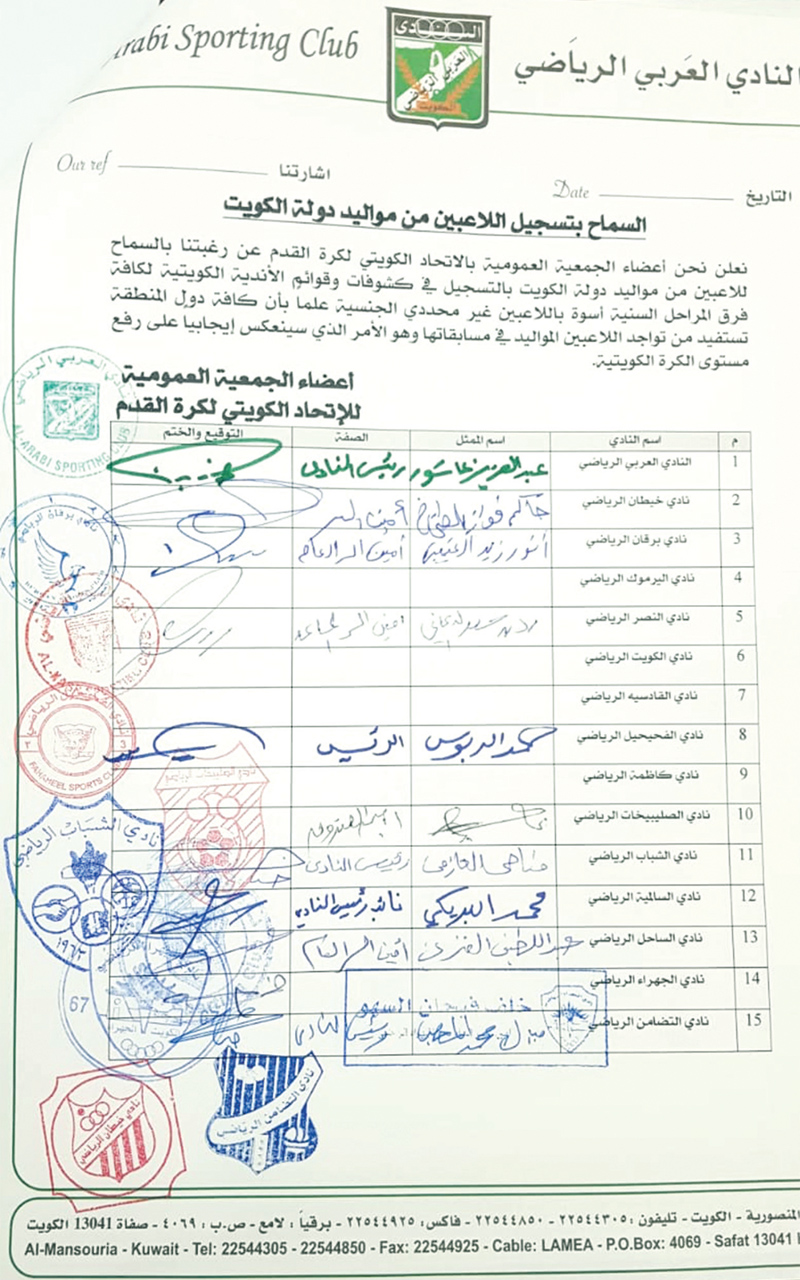 Arabi Sporting Club
النادي العربي الرياضي
Our ref اشارتنا
Date التاريخ
السماح بتسجيل اللاعبين من مواليد دولة الكويت
نعلن نحن أعضاء الجمعية العمومية بالاتحاد الكويتي لكرة القدم عن رغبتنا بالسماح
للاعبين من مواليد دولة الكويت بالتسجيل في كشوفات وقوائم الأندية الكويتية لكافة
فرق المراحل السنية أسوة باللاعبين غير محددي الجنسية علما بأن كافة دول المنطقة
تستفيد من تواجد اللاعبين المواليد في مسابقاتها وهو الأمر الذي سينعكس إيجابيا على رفع
مستوى الكرة الكويتية.
أعضاء الجمعية العمومية
للإتحاد الكويتي لكرة القدم
م اسم النادي اسم الممثل الصفة التوقيع والختم
1 النادي العربي الرياضي عبدالعزيز عاشور رئيس النادي
2 نادي خيطان الرياضي أمين السر
3 نادي برقان الرياضي أنور زيد العتيبي أمين السر العام
4 نادي اليرموك الرياضي
5 نادي النصر الرياضي
6 نادي الكويت الرياضي
7 نادي القادسيه الرياضي
8 نادي الفحيحيل الرياضي حمد الدبوس الرئيس
9 نادي كاظمة الرياضي
10 نادي الصليبيخات الرياضي
11 نادي الشباب الرياضي العازمي رئيس النادي
12 نادي السالمية الرياضي محمد البريكي نائب رئيس النادي
13 نادي الساحل الرياضي أمين السر العام
14 نادي الجهراء الرياضي خلف فريحان السهو
15 نادي التضامن الرياضي رئيس النادي
نادي العربي الرياضي
AL-ARABI SPORTING CLUB
نادي برقان الرياضي
نادي الفحيحيل الرياضي
FAHAHEEL SPORTS CLUB
نادي الصليبخات الرياضي
نادي الشباب الرياضي
١٩٦٣
67
نادي خيطان الرياضي
نادي التضامن الرياضي
المنصورية - الكويت - تليفون : ٢٢٥٤٤٣٠٥ - ٢٢٥٤٤٨٥٠ - فاكس : ٢٢٥٤٤٩٢٥ - برقياً : لامع - ص.ب : ٤٠٦٩ - صفاة 13041 الكويت
Al-Mansouria - Kuwait - Tel: 22544305 - 22544850 - Fax: 22544925 - Cable: LAMEA - P.O.Box: 4069 - Safat 13041